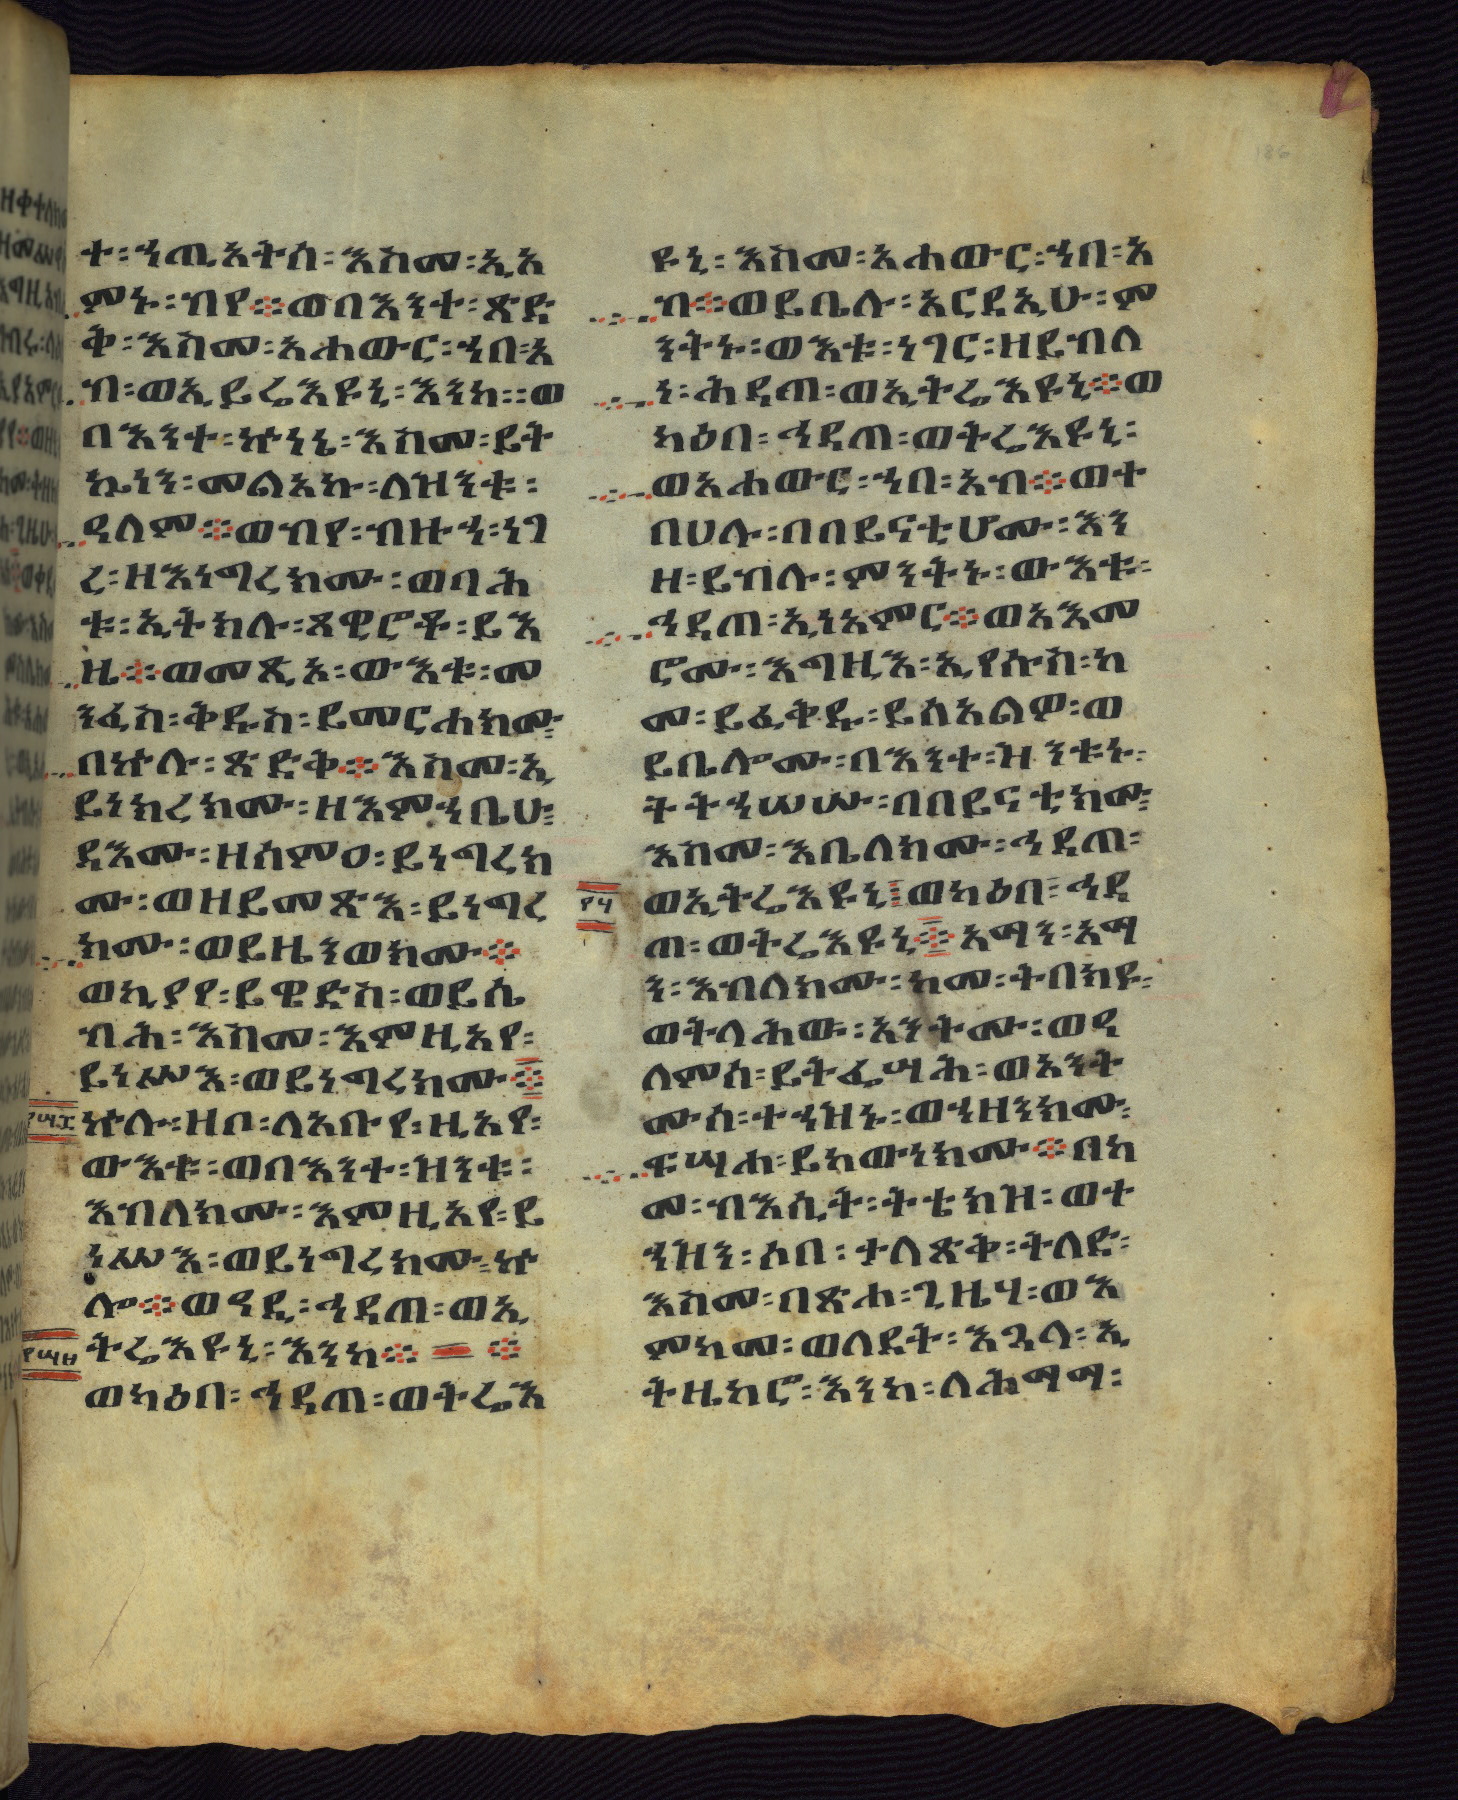 ተ፡ኀጢአትሰ፡እስመ፡ኢአ
ምኑ፡ብየ፨ወበእንተ፡ጽድ
ቅ፡እስመ፡አሐውር፡ኀበ፡አ
ብ፡ወኢይሬእዩኒ፡እንከ፡፡ወ
በእንተ፡ኵነኔ፡እስመ፡ይት
ኴነን፡መልአኩ፡ለዝንቱ፡
ዓለም፨ወብየ፡ብዙኀ፡ነገ
ረ፡ዘእነግረክሙ፡ወባሕ
ቱ፡ኢትክሉ፡ጸዊሮቶ፡ይእ
ዜ፨ወመጺኦ፡ውእቱ፡መ
ንፈስ፡ቅዱስ፡ይመርሐክሙ፡
በኵሉ፡ጽድቅ፨እስመ፡ኢ
ይነክረክሙ፡ዘእምኀቤሁ፡
ዳእሙ፡ዘሰምዐ፡ይነግረክ
ሙ፡ወዘይመጽእ፡ይነግረ
ክሙ፡ወይዜንወክሙ፨
ወኪያየ፡ይዌድስ፡ወይሴ
ብሕ፡እስመ፡እምዚአየ፡
ይነሥእ፡ወይነግረክሙ፨
፻፹፯
ኵሉ፡ዘቦ፡ለአቡየ፡ዚአየ፡
ውእቱ፡ወበእንተ፡ዝንቱ፡
እብለክሙ፡እምዚአየ፡ይ
ነሥእ፡ወይነግረክሙ፡ኵ
ሎ፨ወዓዲ፡ኅዳጠ፡ወኢ
ትሬእዩኒ፡እንከ፨ ፨
፻፹፰
ወካዕበ፡ኅዳጠ፡ወትሬእ
ዩኒ፡እስመ፡አሐውር፡ኀበ፡አ
ብ፨ወይቤሉ፡አርዳኢሁ፡ም
ንትኑ፡ወእቱ፡ነገር፡ዘይብለ
ነ፡ሕዳጠ፡ወኢትሬእዩኒ፨ወ
ካዕበ፡ኅዳጠ፡ወትሬእዩኒ፡
ወአሐውር፡ኀበ፡አብ፨ወተ
በሀሉ፡በበይናቲሆሙ፡እን
ዘ፡ይብሉ፡ምንትኑ፡ውእቱ፡
ኅዳጠ፡ኢነአምር፨ወአእመ
ሮሙ፡እግዚእ፡ኢየሱስ፡ከ
መ፡ይፈቅዱ፡ይሰአልዎ፡ወ
ይቤሎሙ፡በእንተ፡ዝንቱኑ፡
ትትኀሠሡ፡በበይናቲክሙ፡
እስመ፡እቤለክሙ፡ኅዳጠ፡
፻፺
ወኢትሬእዩኒ፤ወካዕበ፡ኅዳ
ጠ፡ወትሬእዩኒ፨አማን፡አማ
ን፡እብለክሙ፡ከመ፡ትበክዩ፡
ወትላሕዉ፡አንትሙ፡ወዓ
ለምሰ፡ይትፌሣሕ፡ወአንት
ሙሰ፡ተኀዝኑ፡ወኀዘንክሙ፡
ፍሣሐ፡ይከውነክሙ፨በከ
መ፡ብእሲት፡ትቴክዝ፡ወተ
ኀዝን፡ሶበ፡ተለጽቅ፡ትለድ፡
እስመ፡በጽሐ፡ጊዜሃ፡ወእ
ምከመ፡ወለደት፡እጓላ፡ኢ
ትዜከሮ፡እንከ፡ለሕማማ፡